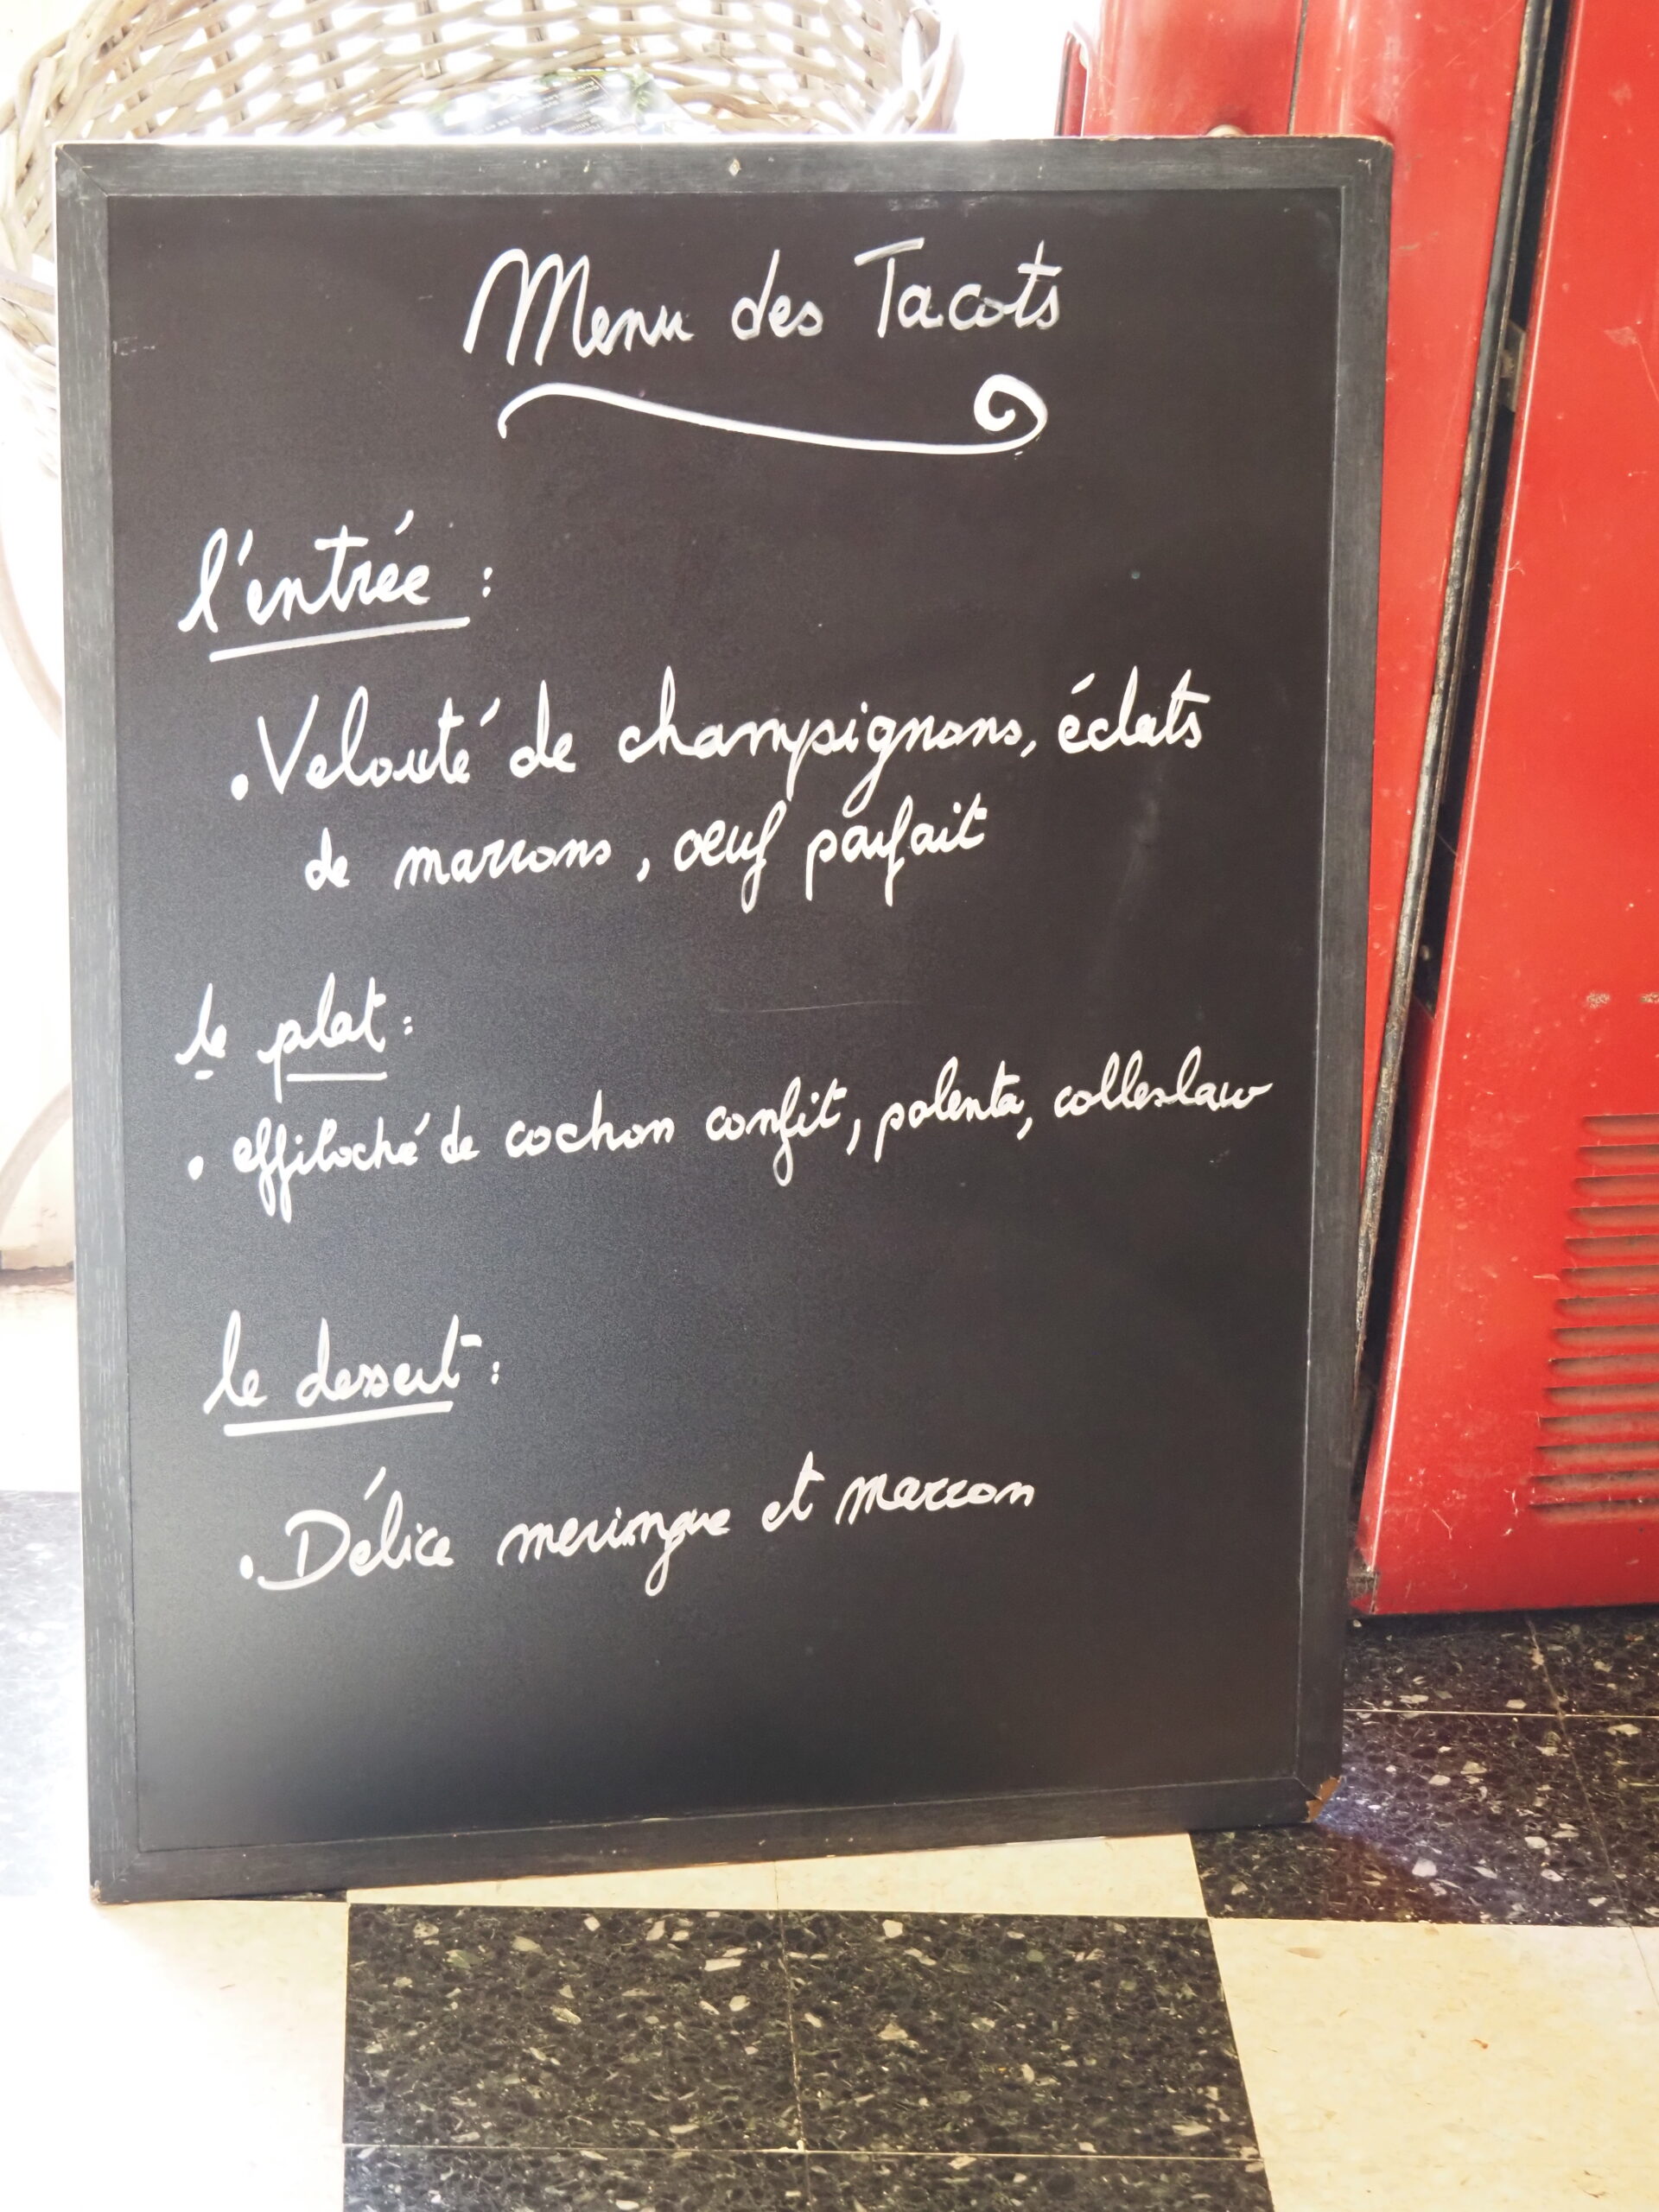 Menu des Tacots
l'entrée :
• Velouté de champignons, éclats
de marrons, œuf parfait
le plat :
• effiloché de cochon confit, polenta, colleslaw
le dessert :
• Délice meringue et marron